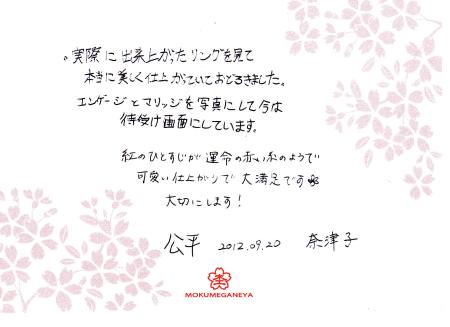 。実際に出来上がったリングを見て
本当に美しく仕上がっていておどろきました。
エンゲージとマリッジを写真にして今は
待受け画面にしています。
紅のひとすじが運命の赤い糸のようで
可愛い仕上がりで大満足です
大切にします！
公平 2012.09.20 奈津子
MOKUMEGANEYA